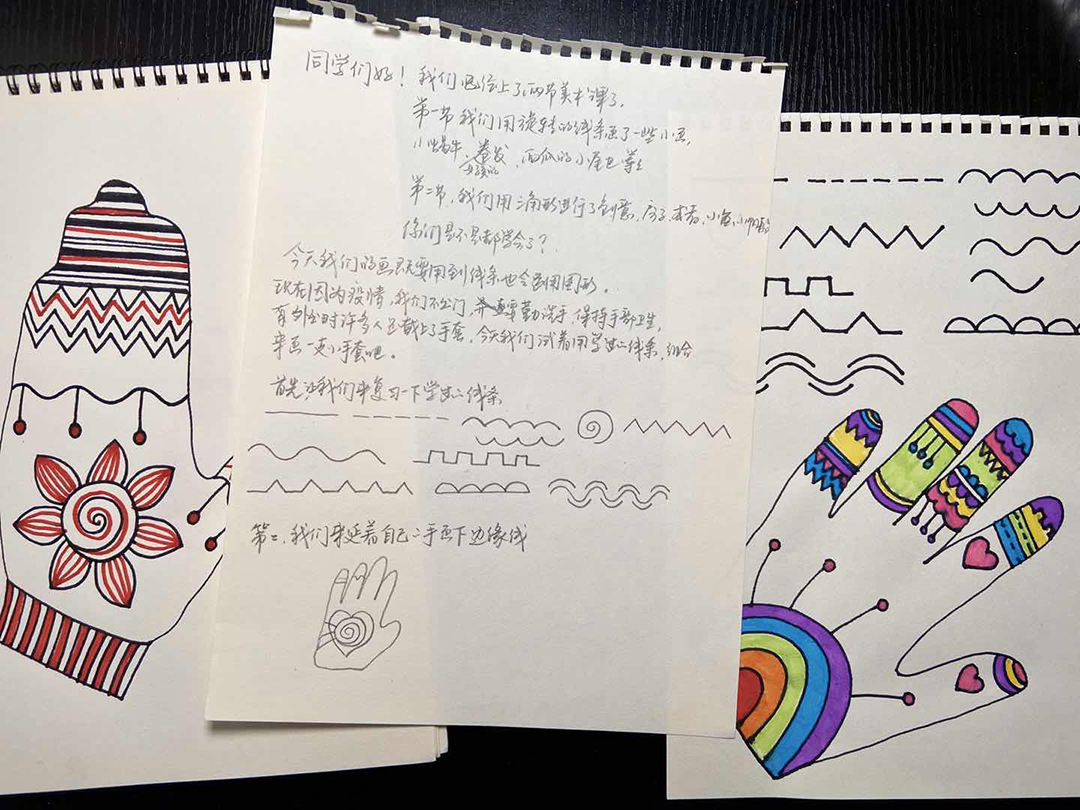 同学们好！我们已经上了两节美术课了，
第一节我们用旋转的线条画了一些小画，
小蜗牛、卷发、西瓜的小尾巴等等
女孩的
第二节，我们用三角形进行了创意，房子、小鱼、小
你们是不是都学会了？
今天我们的画既要用到线条也会用到图形。
现在因为疫情，我们不出门，并且要勤洗手，保持手部卫生，
有外出时许多人还戴上了手套，今天我们试着用学过的线条，组合
来画一支小手套吧。
首先让我们来复习一下学过的线条
第二，我们来延着自己的手画下边缘线